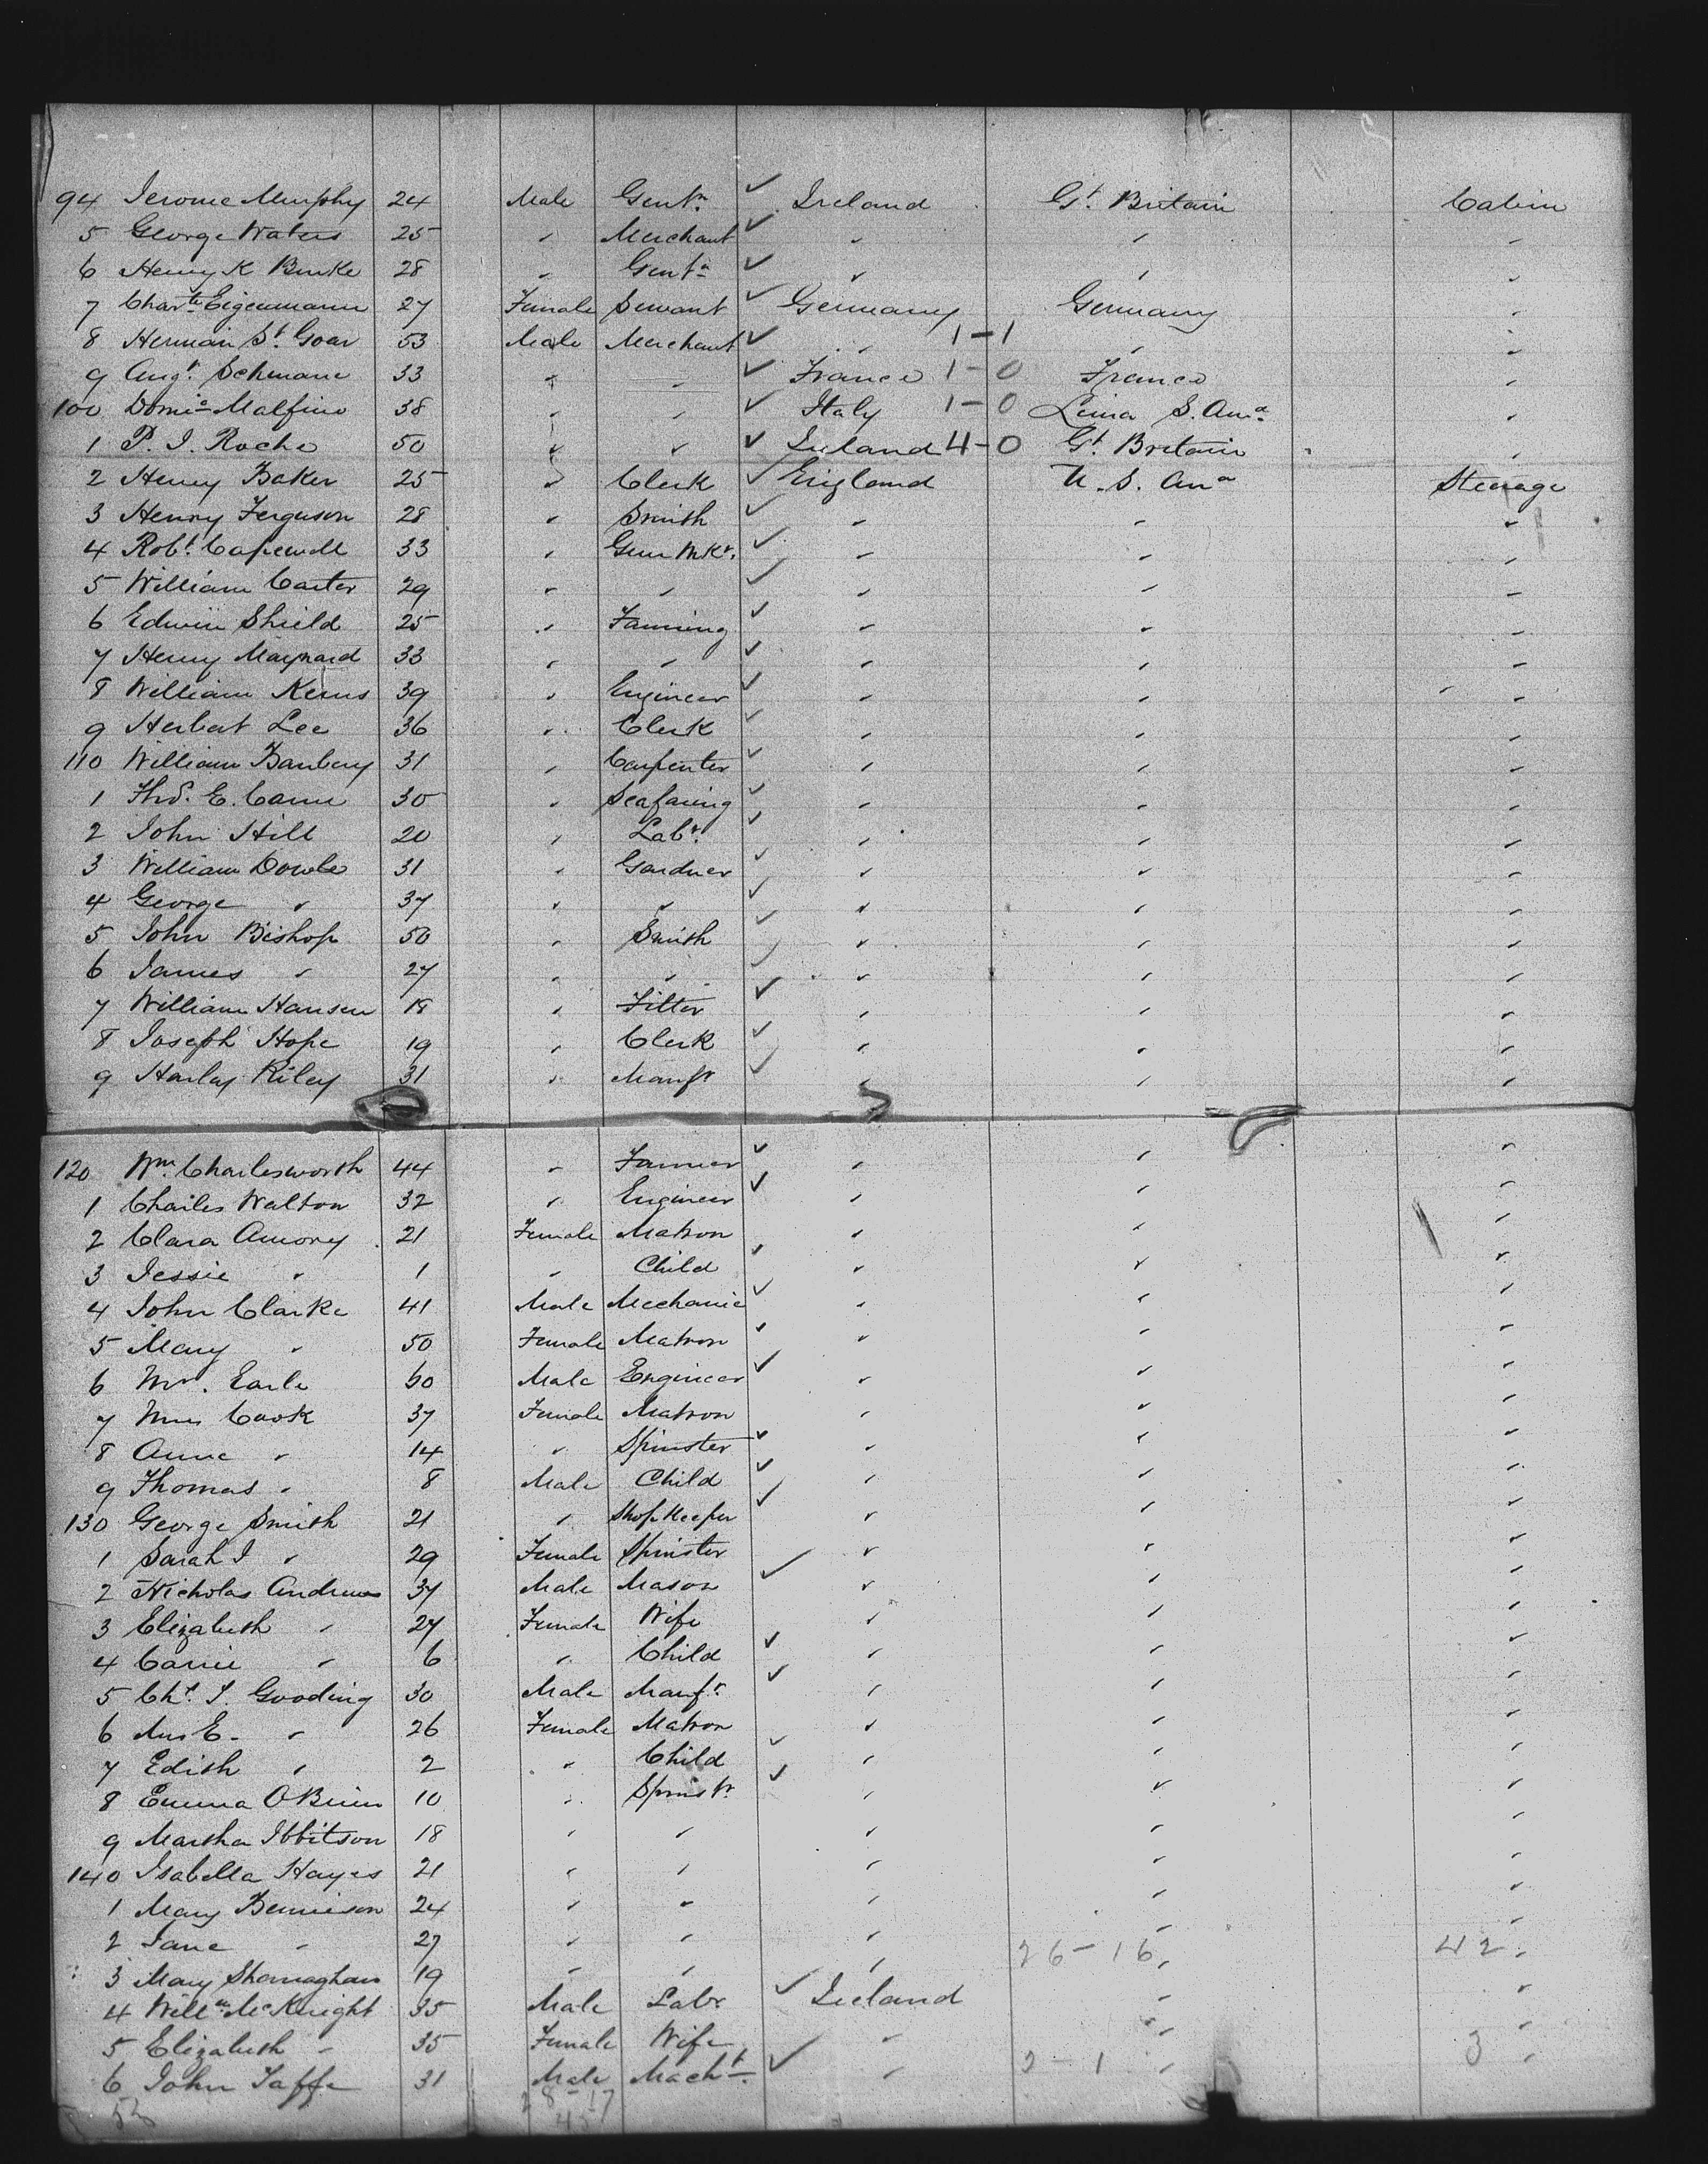 94 Jerome Murphy 24 Male Gentn ✓ Ireland Gt. Britain Cabin
5 George Waters 25 " Merchant ✓ " " "
6 Henry K Burke 28 " Gentn ✓ " " "
7 Chartte Eigenmann 27 Female Servant ✓ Germany Germany "
8 Herman St. Goar 53 Male Merchant ✓ " 1-1 " "
9 Augt. Schmane 33 " " ✓ France 1-0 France "
100 Domco Malfino 38 " " ✓ Italy 1-0 Lima S. Ama "
1 P. J. Roche 50 " " ✓ Ireland 4-0 Gt. Britain "
2 Henry Baker 25 " Clerk ✓ England U.S. Ama Steerage
3 Henry Ferguson 28 " Smith ✓ " " "
4 Robt. Capewell 33 " Gun Mkr. ✓ " " "
5 William Carter 29 " " ✓ " " "
6 Edwin Shield 25 " Farming ✓ " " "
7 Henry Maynard 33 " " ✓ " " "
8 William Kerns 39 " Engineer ✓ " " "
9 Herbert Lee 36 " Clerk ✓ " " "
110 William Banbury 31 " Carpenter ✓ " " "
1 Thos. E. Cann 30 " Seafaring ✓ " " "
2 John Hill 20 " Labr. ✓ " " "
3 William Dowle 31 " Gardner ✓ " " "
4 George " 37 " " ✓ " " "
5 John Bishop 50 " Smith ✓ " " "
6 James " 27 " " ✓ " " "
7 William Hansen 18 " Fitter ✓ " " "
8 Joseph Hope 19 " Clerk ✓ " " "
9 Harlay Riley 31 " Manfr ✓ " " "
120 Wm. Charlesworth 44 " Farmer ✓ " " "
1 Charles Walton 32 " Engineer ✓ " " "
2 Clara Amory 21 Female Matron " " "
3 Jessie " 1 " Child ✓ " " "
4 John Clarke 41 Male Mechanic ✓ " " "
5 Mary " 50 Female Matron ✓ " " "
6 Mr. Earle 60 Male Engineer ✓ " " "
7 Mrs Cook 37 Female Matron " " "
8 Anne " 14 " Spinster ✓ " " "
9 Thomas " 8 Male Child ✓ " " "
130 George Smith 21 " Shop Keeper ✓ " " "
1 Sarah J " 29 Female Spinster " " "
2 Nicholas Andrews 37 Male Mason ✓ " " "
3 Elizabeth " 27 Female Wife " " "
4 Carrie " 6 " Child ✓ " " "
5 Chs. J. Gooding 30 Male Manfr. ✓ " " "
6 Ms E. " 26 Female Matron " " "
7 Edith " 2 " Child ✓ " " "
8 Emma O'Brien 10 " Spinstr. ✓ " " "
9 Martha Ibbitson 18 " " " " "
140 Isabella Hayes 21 " " " " "
1 Mary Bennison 24 " " " " "
2 Jane " 27 " " " " "
26-16 42
3 Mary Shannaghan 19 " " " " "
4 Willm McKnight 35 Male Labr ✓ Ireland " "
5 Elizabeth " 35 Female Wife " " "
2-1 3
6 John Taffe 31 Male Macht. ✓ " " "
28-17
45